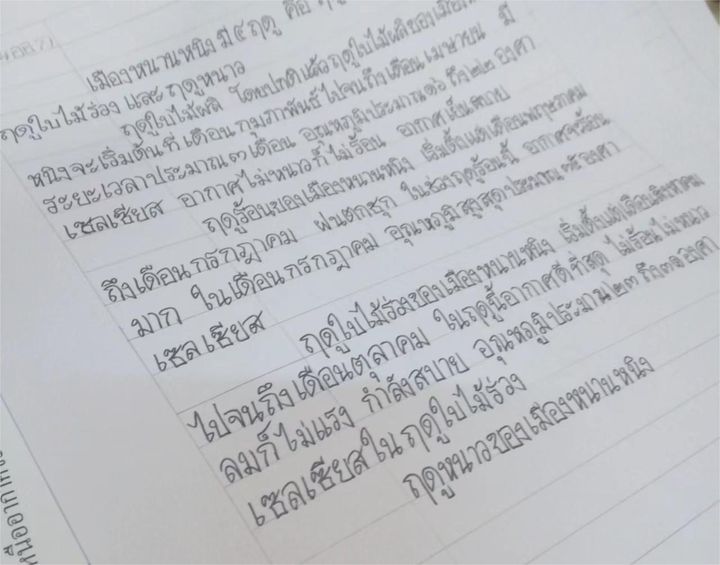 เมืองหนานหนิง มี ๔ ฤดู คือ
ฤดูใบไม้ร่วง และ ฤดูหนาว
ฤดูใบไม้ผลิ โดยปกติแล้ว ฤดูใบไม้ผลิของเมือง
หนิงจะเริ่มต้นที่ เดือน กุมภาพันธ์ ไปจนถึงเดือน เมษายน มี
ระยะเวลาประมาณ ๓ เดือน อุณหภูมิประมาณ ๑๖ ถึง ๒๒ องศา
เซลเซียส อากาศไม่หนาว ก็ ไม่ร้อน อากาศเย็นสบาย
ฤดูร้อนของเมืองหนานหนิง เริ่มตั้งแต่เดือนพฤษภาคม
ถึงเดือน กรกฎาคม ฝนตกชุก ในช่วงฤดูร้อนนี้ อากาศจะร้อน
มาก ในเดือน กรกฎาคม อุณหภูมิ สูงสุดประมาณ ๓๕ องศา
เซลเซียส
ฤดูใบไม้ร่วงของเมืองหนานหนิง เริ่มตั้งแต่เดือนสิงหาคม
ไปจนถึงเดือนตุลาคม ในฤดูนี้อากาศดีที่สุด ไม่ร้อนไม่หนาว
ลมก็ไม่แรง กำลังสบาย อุณหภูมิ ประมาณ ๒๓ ถึง ๓๑ องศา
เซลเซียสใน ฤดูใบไม้ร่วง
ฤดูหนาวของเมืองหนานหนิง